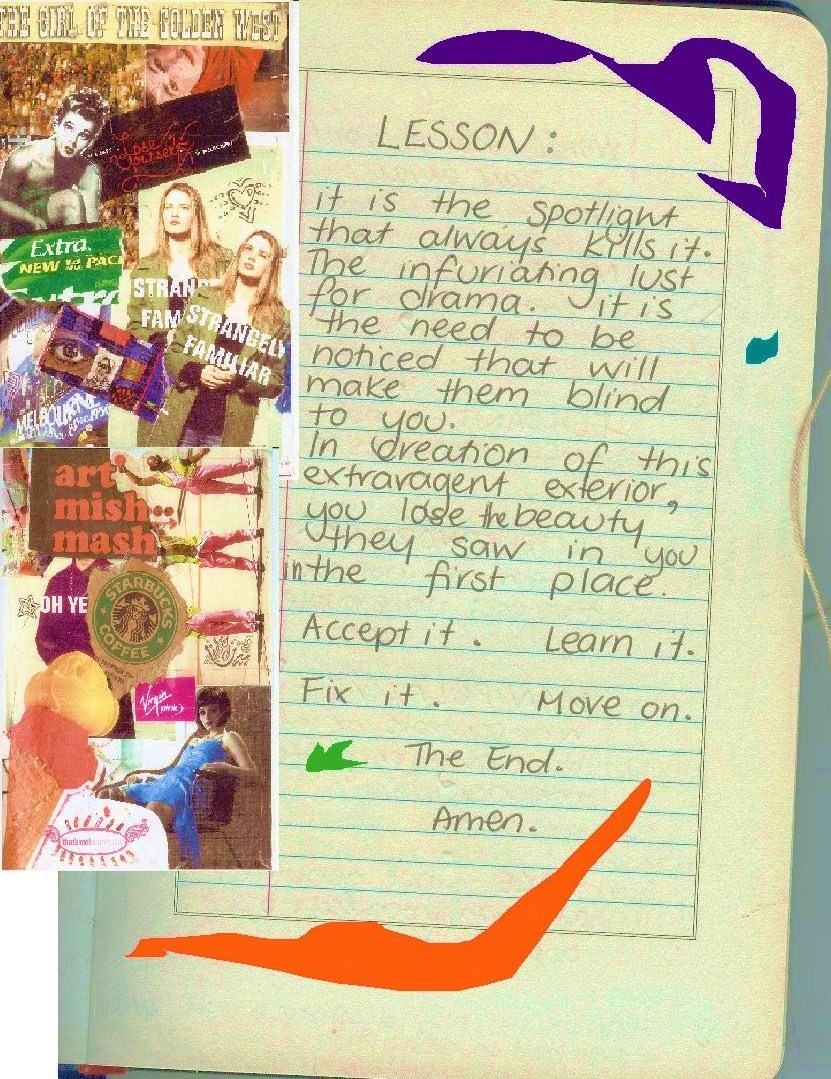 THE GIRL OF THE GOLDEN WEST
Lose
Yourself
Extra.
NEW PACK
Extra
STRANGELY
FAMILIAR
STRANGELY
FAMILIAR
MELBOURNE
art
mish..
mash
OH YE
STARBUCKS
COFFEE
Virgin
pink
LESSON:
it is the spotlight
that always kills it.
The infuriating lust
for drama. it is
the need to be
noticed that will
make them blind
to you.
In creation of this
extravagent exterior,
you lose the beauty
they saw in you
in the first place.
Accept it. Learn it.
Fix it. Move on.
The End.
Amen.